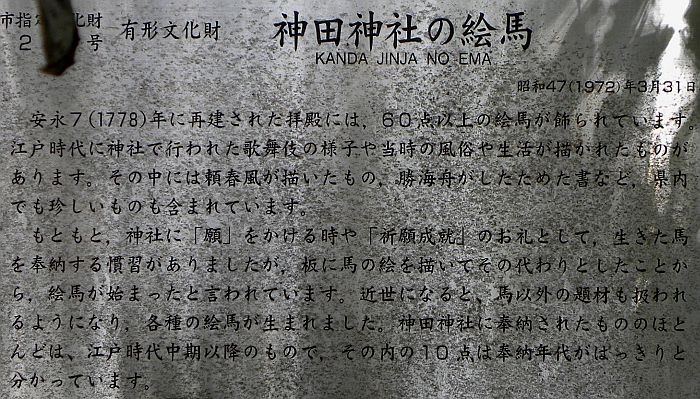 市指定 化財
2 号 有形文化財 神田神社の絵馬
KANDA JINJA NO EMA
昭和47(1972)年3月31日
安永7(1778)年に再建された拝殿には，60点以上の絵馬が飾られています
江戸時代に神社で行われた歌舞伎の様子や当時の風俗や生活が描かれたものが
あります。その中には頼春風が描いたもの，勝海舟がしたためた書など，県内
でも珍しいものも含まれています。
もともと，神社に「願」をかける時や「祈願成就」のお礼として，生きた馬
を奉納する慣習がありましたが，板に馬の絵を描いてその代わりとしたことか
ら，絵馬が始まったと言われています。近世になると、馬以外の題材も扱われ
るようになり，各種の絵馬が生まれました。神田神社に奉納されたもののほと
んどは、江戸時代中期以降のもので，その内の10点は奉納年代がはっきりと
分かっています。